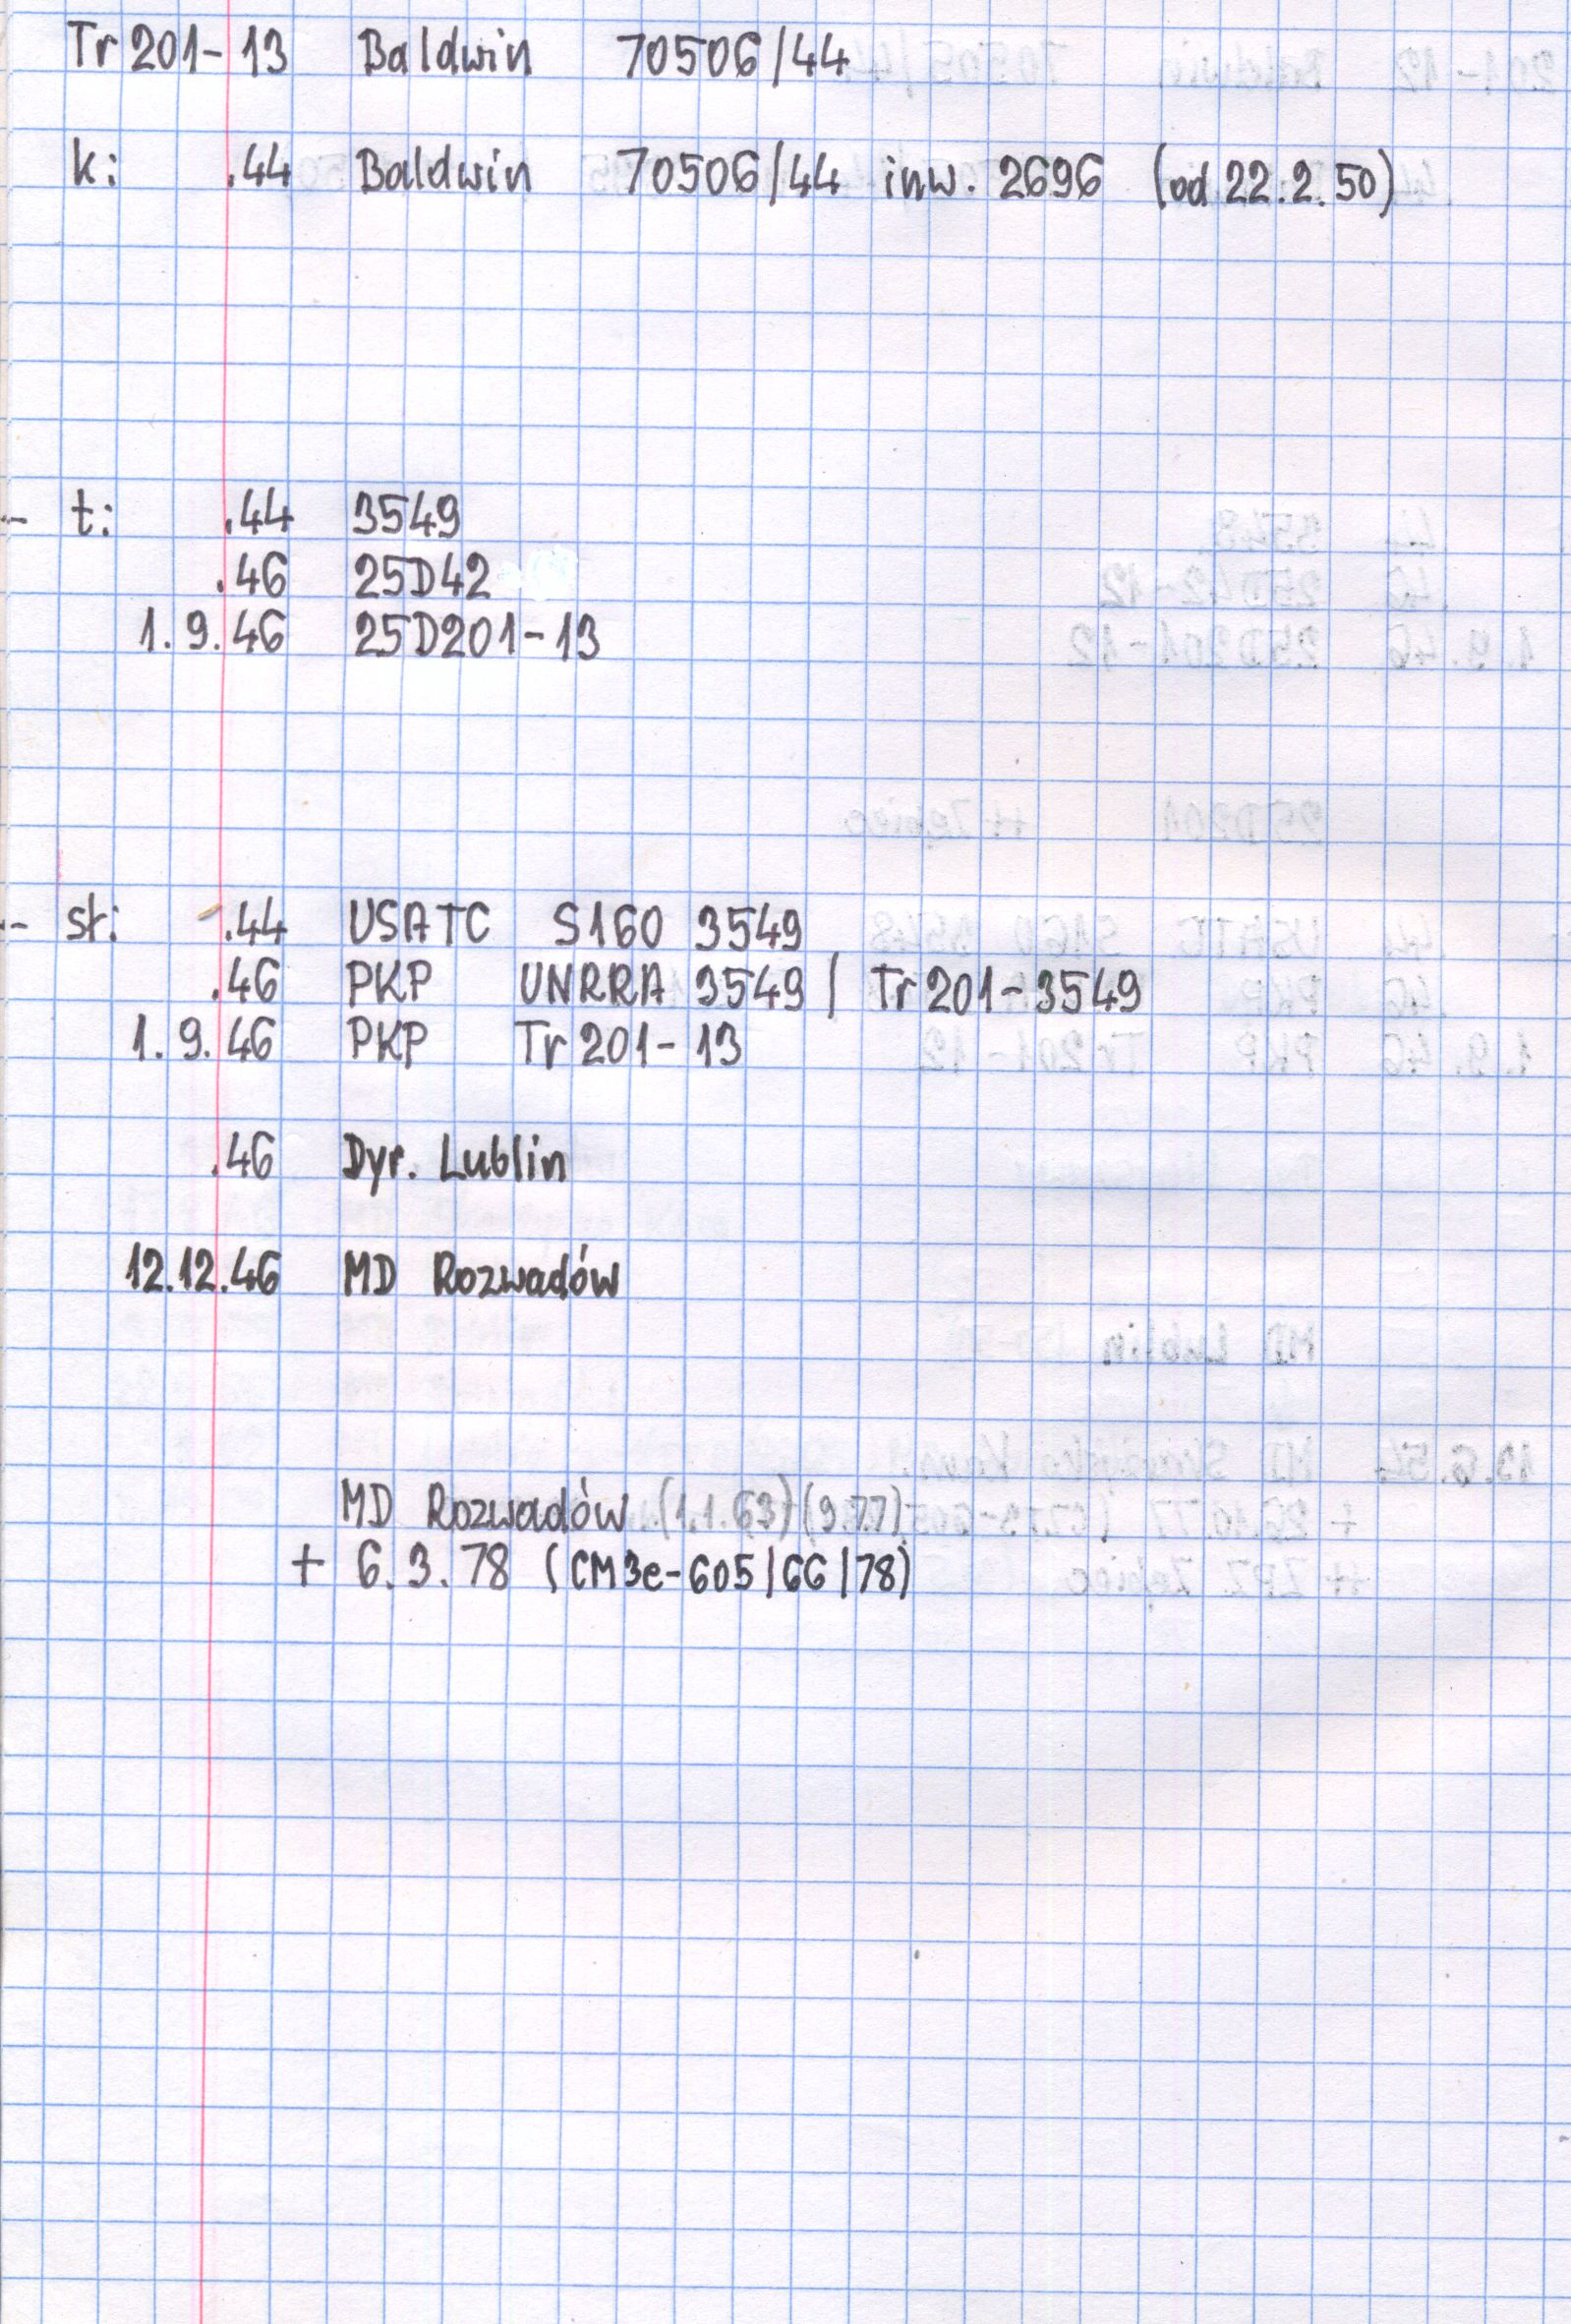 Tr 201-13 Baldwin 70506/44
k: .44 Baldwin 70506/44 inw. 2696 (od 22.2.50)
t: .44 3549
.46 25D42
1.9.46 25D201-13
st: .44 USATC S160 3549
.46 PKP UNRRA 3549 / Tr 201-3549
1.9.46 PKP Tr 201-13
.46 Dyr. Lublin
12.12.46 MD Rozwadów
MD Rozwadów (1.1.63) (9.77)
+ 6.3.78 (CM3e-605/66/78)